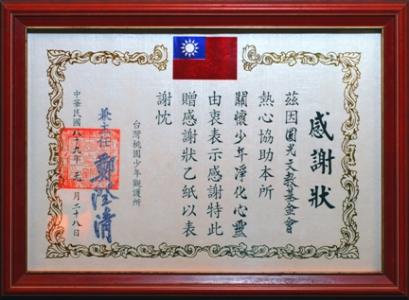 感謝狀
茲因圓光文教基金會
熱心協助本所
關懷少年淨化心靈
由衷表示感謝特此
贈感謝狀乙紙以表
謝忱
台灣桃園少年觀護所
兼主任 鄭澄清
中華民國八十九年 月二十八日